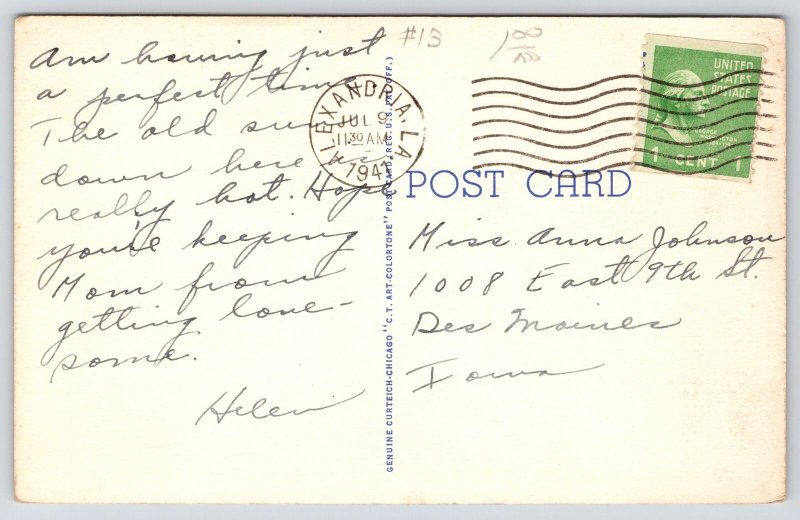 Am having just
a perfect time.
The old sun
down here is
really hot. Hope
you're keeping
Mom from
getting lone-
some.
Helen
#13
ALEXANDRIA, LA
JUL 9
11 30 AM
1941
UNITED
STATES
POSTAGE
GEORGE
WASHINGTON
1 CENT 1
POST CARD
Miss Anna Johnson
1008 East 9th St.
Des Moines
Iowa
GENUINE CURTEICH-CHICAGO "C.T. ART-COLORTONE" POST CARD (REG. U.S. PAT. OFF.)